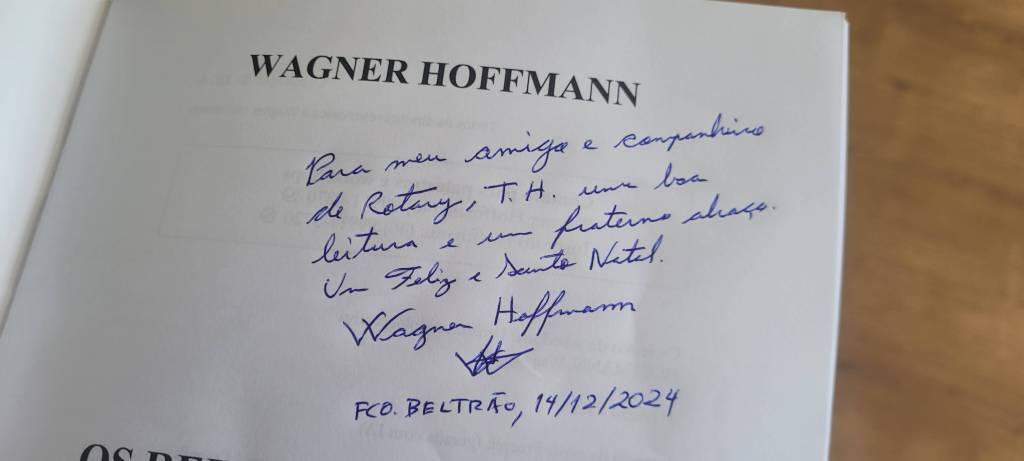 WAGNER HOFFMANN
Para meu amigo e companheiro
de Rotary, T.H. uma boa
leitura e um fraterno abraço.
Um Feliz e Santo Natal.
Wagner Hoffmann
FCO. BELTRÃO, 14/12/2024
OS